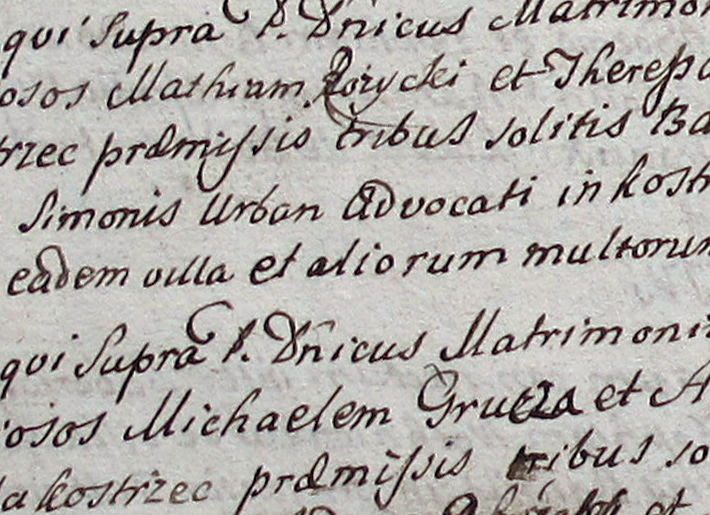 qui Supra P. Dñicus Matrimon
osos Mathiam Rozycki et Theressa
trzec præmissis tribus solitis Ba
Simonis Urban Advocati in Kostr
eadem villa et aliorum multorum
qui Supra P. Dñicus Matrimoni
iosos Michaelem et A
la Kostrzec præmissis tribus so
et